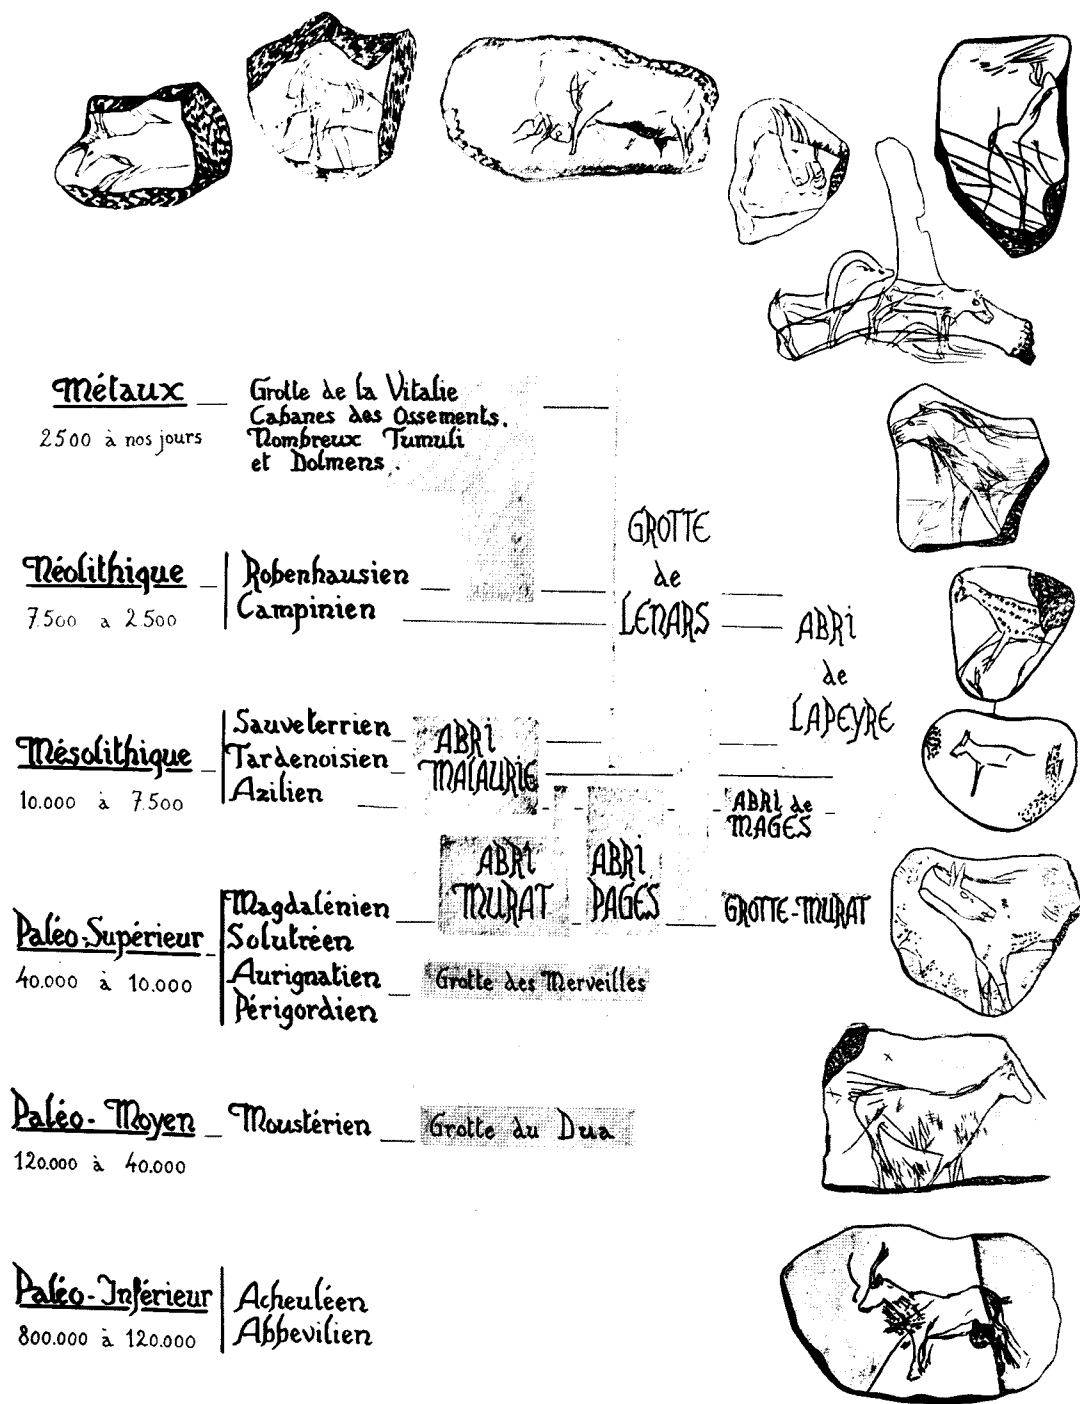 Métaux
2500 à nos jours
Grotte de la Vitalie
Cabanes des Ossements.
Nombreux Tumuli
et Dolmens.
Néolithique
7.500 a 2.500
Robenhausien
Campinien
GROTTE
de
LENARS
ABRI
de
LAPEYRE
Mésolithique
10.000 à 7.500
Sauveterrien
Tardenoisien
Azilien
ABRI
MALAURIE
ABRI de
MAGES
Paléo-Supérieur
40.000 à 10.000
Magdalénien
Solutréen
Aurignatien
Périgordien
ABRI
MURAT
ABRI
PAGES
GROTTE-MURAT
Grotte des Merveilles
Paléo-Moyen
120.000 à 40.000
Moustérien
Grotte du Dua
Paléo-Inférieur
800.000 à 120.000
Acheuléen
Abbevilien